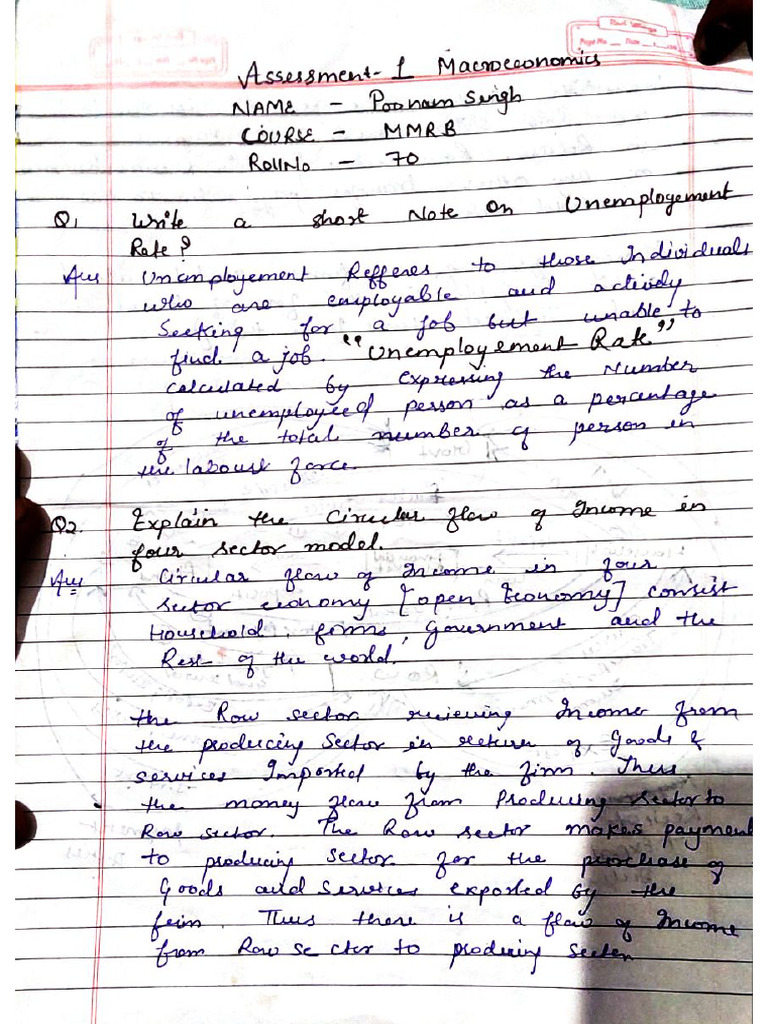 Assessment-1 Macroeconomics
NAME - Poonam Singh
COURSE - MMRB
RollNo - 70
Q1 Write a short Note on Unemployement
Rate?
Ans Unemployement Refferes to those Individuals
who are employable and actively
Seeking for a job but unable to
find a job. "Unemployement Rate"
calculated by expressing the Number
of unemployeed person as a percentage
of the total number of person in
the labour force.
Q2. Explain the circular flow of Income in
four sector model.
Ans Circular flow of Income in four
sector economy [open Economy] consist
Household, firms, Government and the
Rest of the world.
the Row sector recieving Income from
the producing sector in return of Goods &
services Imported by the firm. Thus
the money flow from Producing sector to
Row sector. The Row sector makes payment
to producing sector for the purchase of
Goods and Services exported by the
firm. Thus there is a flow of Income
from Row sector to producing sector